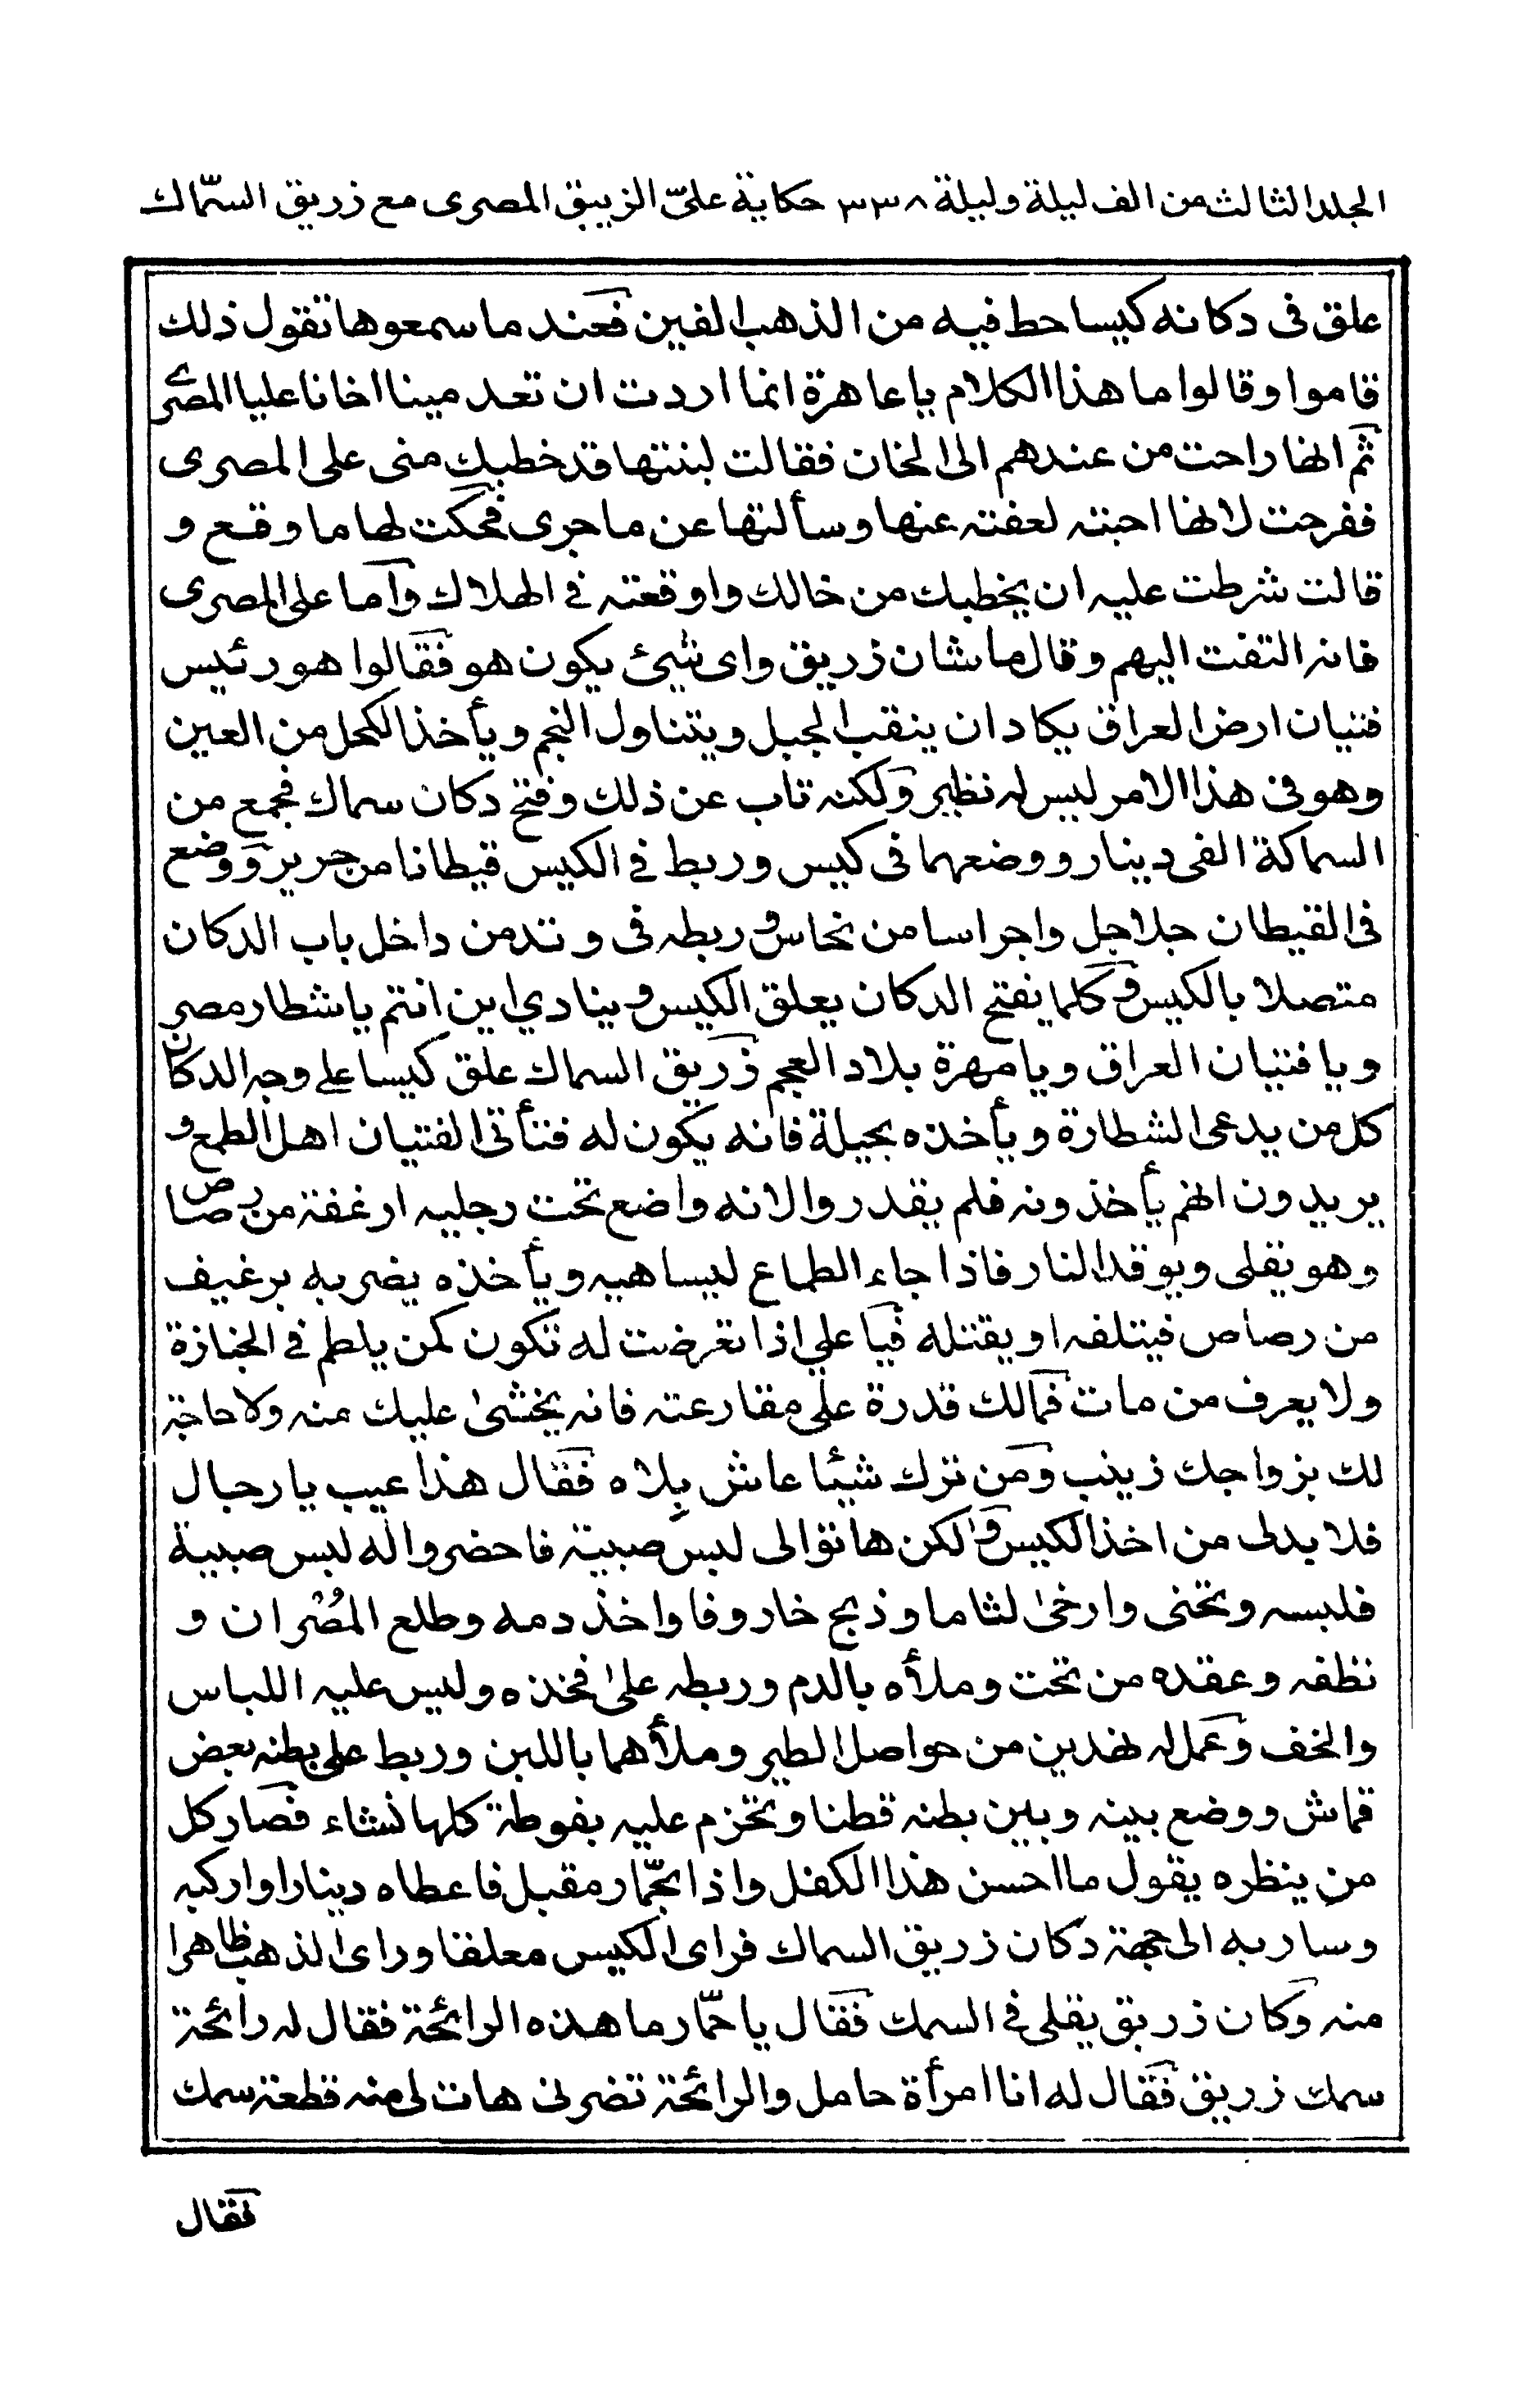 المجلد الثالث من الف ليلة وليلة ٣٣٨ حكاية علىّ الزيبق المصرى مع زريق السمّاك
علق فى دكانه كيسا حط فيه من الذهب الفين فعند ما سمعوها تقول ذلك
قاموا وقالوا ما هذا الكلام يا عاهرة انما اردت ان تعدمينا اخانا عليا المصرى
ثم انها راحت من عندهم الى الخان فقالت لبنتها قد خطبك منى على المصرى
ففرحت لانها احبته لعفته عنها وسألتها عن ما جرى فحكت لها ما وقع و
قالت شرطت عليه ان يخطبك من خالك واوقعته فى الهلاك واما على المصرى
فانه التفت اليهم وقال ما شان زريق واى شيئ يكون هو فقالوا هو رئيس
فتيان ارض العراق يكاد ان ينقب الجبل ويتناول النجم ويأخذ الكحل من العين
وهو فى هذا الامر ليس له نظير ولكنه تاب عن ذلك وفتح دكان سماك فجمع من
السماكة الفى دينار ووضعهما فى كيس وربط فى الكيس قيطانا من حرير ووضع
فى القيطان جلاجل واجراسا من نحاس وربطه فى وتد من داخل باب الدكان
متصلا بالكيس وكلما يفتح الدكان يعلق الكيس وينادي اين انتم يا شطار مصر
ويا فتيان العراق ويا مهرة بلاد العجم زريق السماك علق كيسا على وجه الدكان
كل من يدعى الشطارة ويأخذه بحيلة فانه يكون له فتأتى الفتيان اهل الطمع و
يريدون انهم يأخذونه فلم يقدروا لانه واضع تحت رجليه ارغفة من رصاص
وهو يقلى ويوقد النار فاذا جاء الطماع ليساهيه ويأخذه يضربه برغيف
من رصاص فيتلفه او يقتله فيا علي اذا تعرضت له تكون كمن يلطم فى الجنازة
ولا يعرف من مات فمالك قدرة على مقارعته فانه يخشىٰ عليك منه ولا حاجة
لك بزواجك زينب ومن ترك شيئا عاش بِلاه فقال هذا عيب يا رجال
فلا بد لى من اخذ الكيس ولكن هاتوا لى لبس صبية فاحضروا له لبس صبية
فلبسه وتحنى وارخىٰ لثاما وذبح خاروفا واخذ دمه وطلع المُصْران و
نظفه وعقده من تحت وملأه بالدم وربطه علىٰ فخذه ولبس عليه اللباس
والخف وعمل له نهدين من حواصل الطير وملأهما باللبن وربط على بطنه بعض
قماش ووضع بينه وبين بطنه قطنا وتحزم عليه بفوطة كلها نشاء فصار كل
من ينظره يقول ما احسن هذا الكفل واذا بحمّار مقبل فاعطاه دينارا واركبه
وسار به الى جهة دكان زريق السماك فراى الكيس معلقا وراى الذهب ظاهرا
منه وكان زريق يقلى فى السمك فقال يا حمّار ما هذه الرائحة فقال له رائحة
سمك زريق فقال له انا امرأة حامل والرائحة تضرنى هات لى منه قطعة سمك
فقال